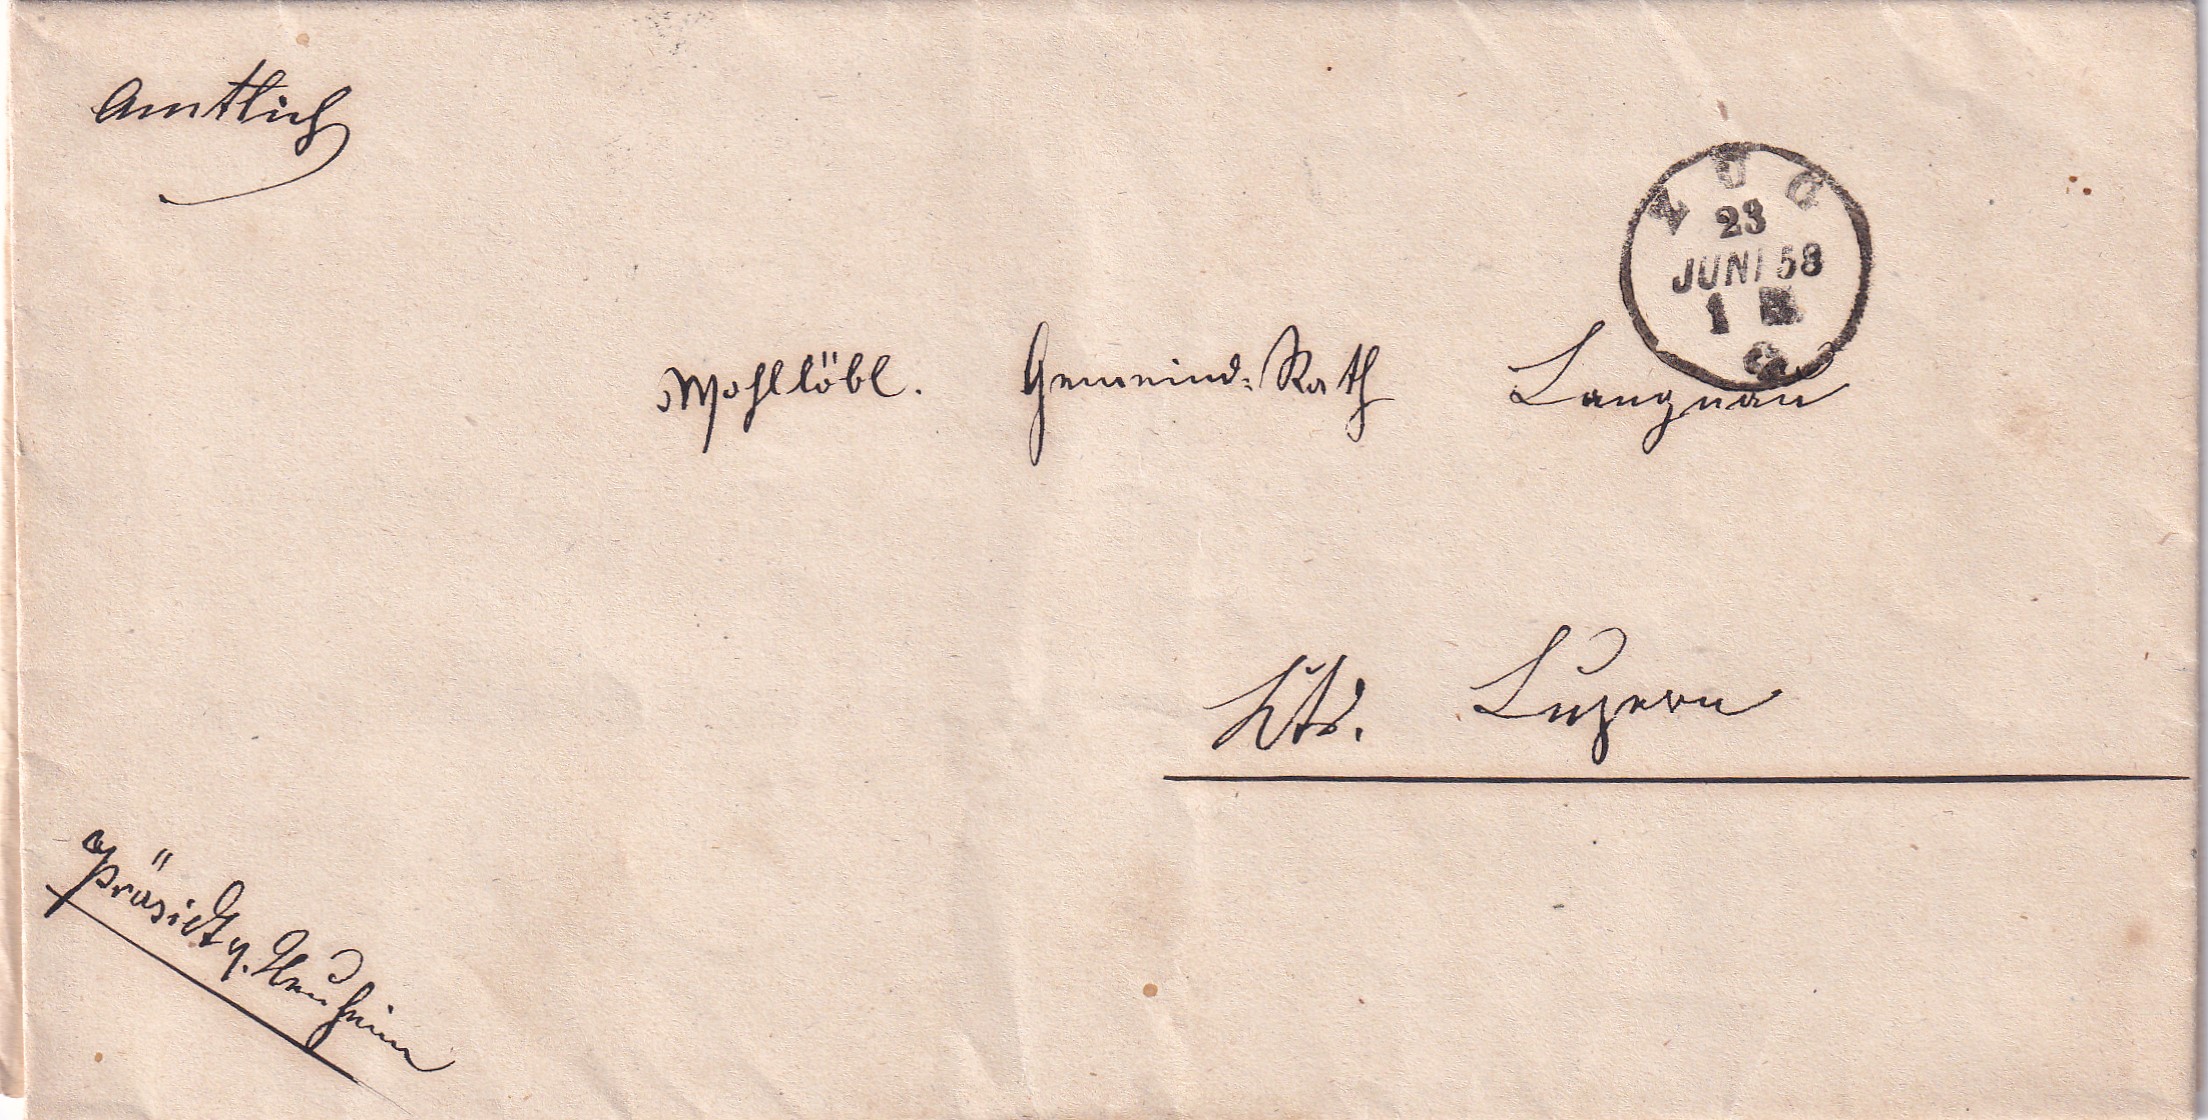 Amtlich
ZUG
23
JUNI 58
1
Wohllöbl. Gemeind-Rath Langnau
Kts. Luzern
Präsidt v. Neuheim